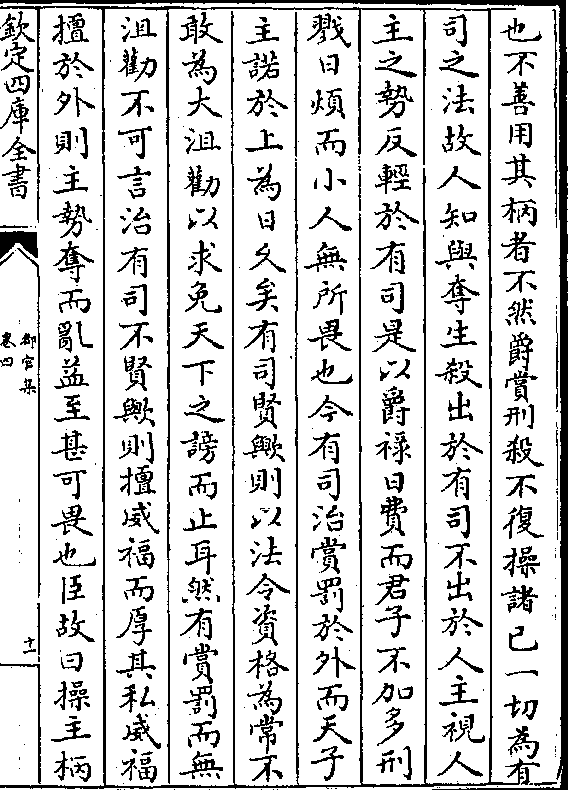 也不善用其柄者不然爵賞刑殺不復操諸己一切為有
司之法故人知與奪生殺出於有司不出於人主視人
主之勢反輕於有司是以爵祿日費而君子不加多刑
戮日煩而小人無所畏也今有司治賞罰於外而天子
主諾於上為日久矣有司賢歟則以法令資格為常不
敢為大沮勸以求免天下之謗而止耳然有賞罰而無
沮勸不可言治有司不賢歟則擅威福而厚其私威福
擅於外則主勢奪而亂益至甚可畏也臣故曰操主柄
欽定四庫全書
都官集
卷四
十一